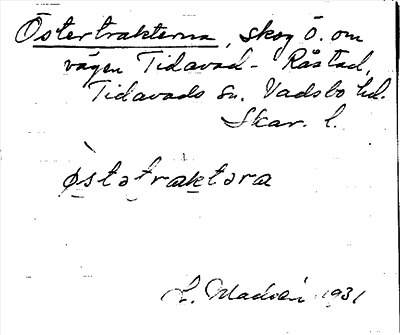 Östertrakterna, skog ö. om
vägen Tidavad - Råstad,
Tidavads sn. Vadsbo hd.
Skar. l.
østətraktəra
1931